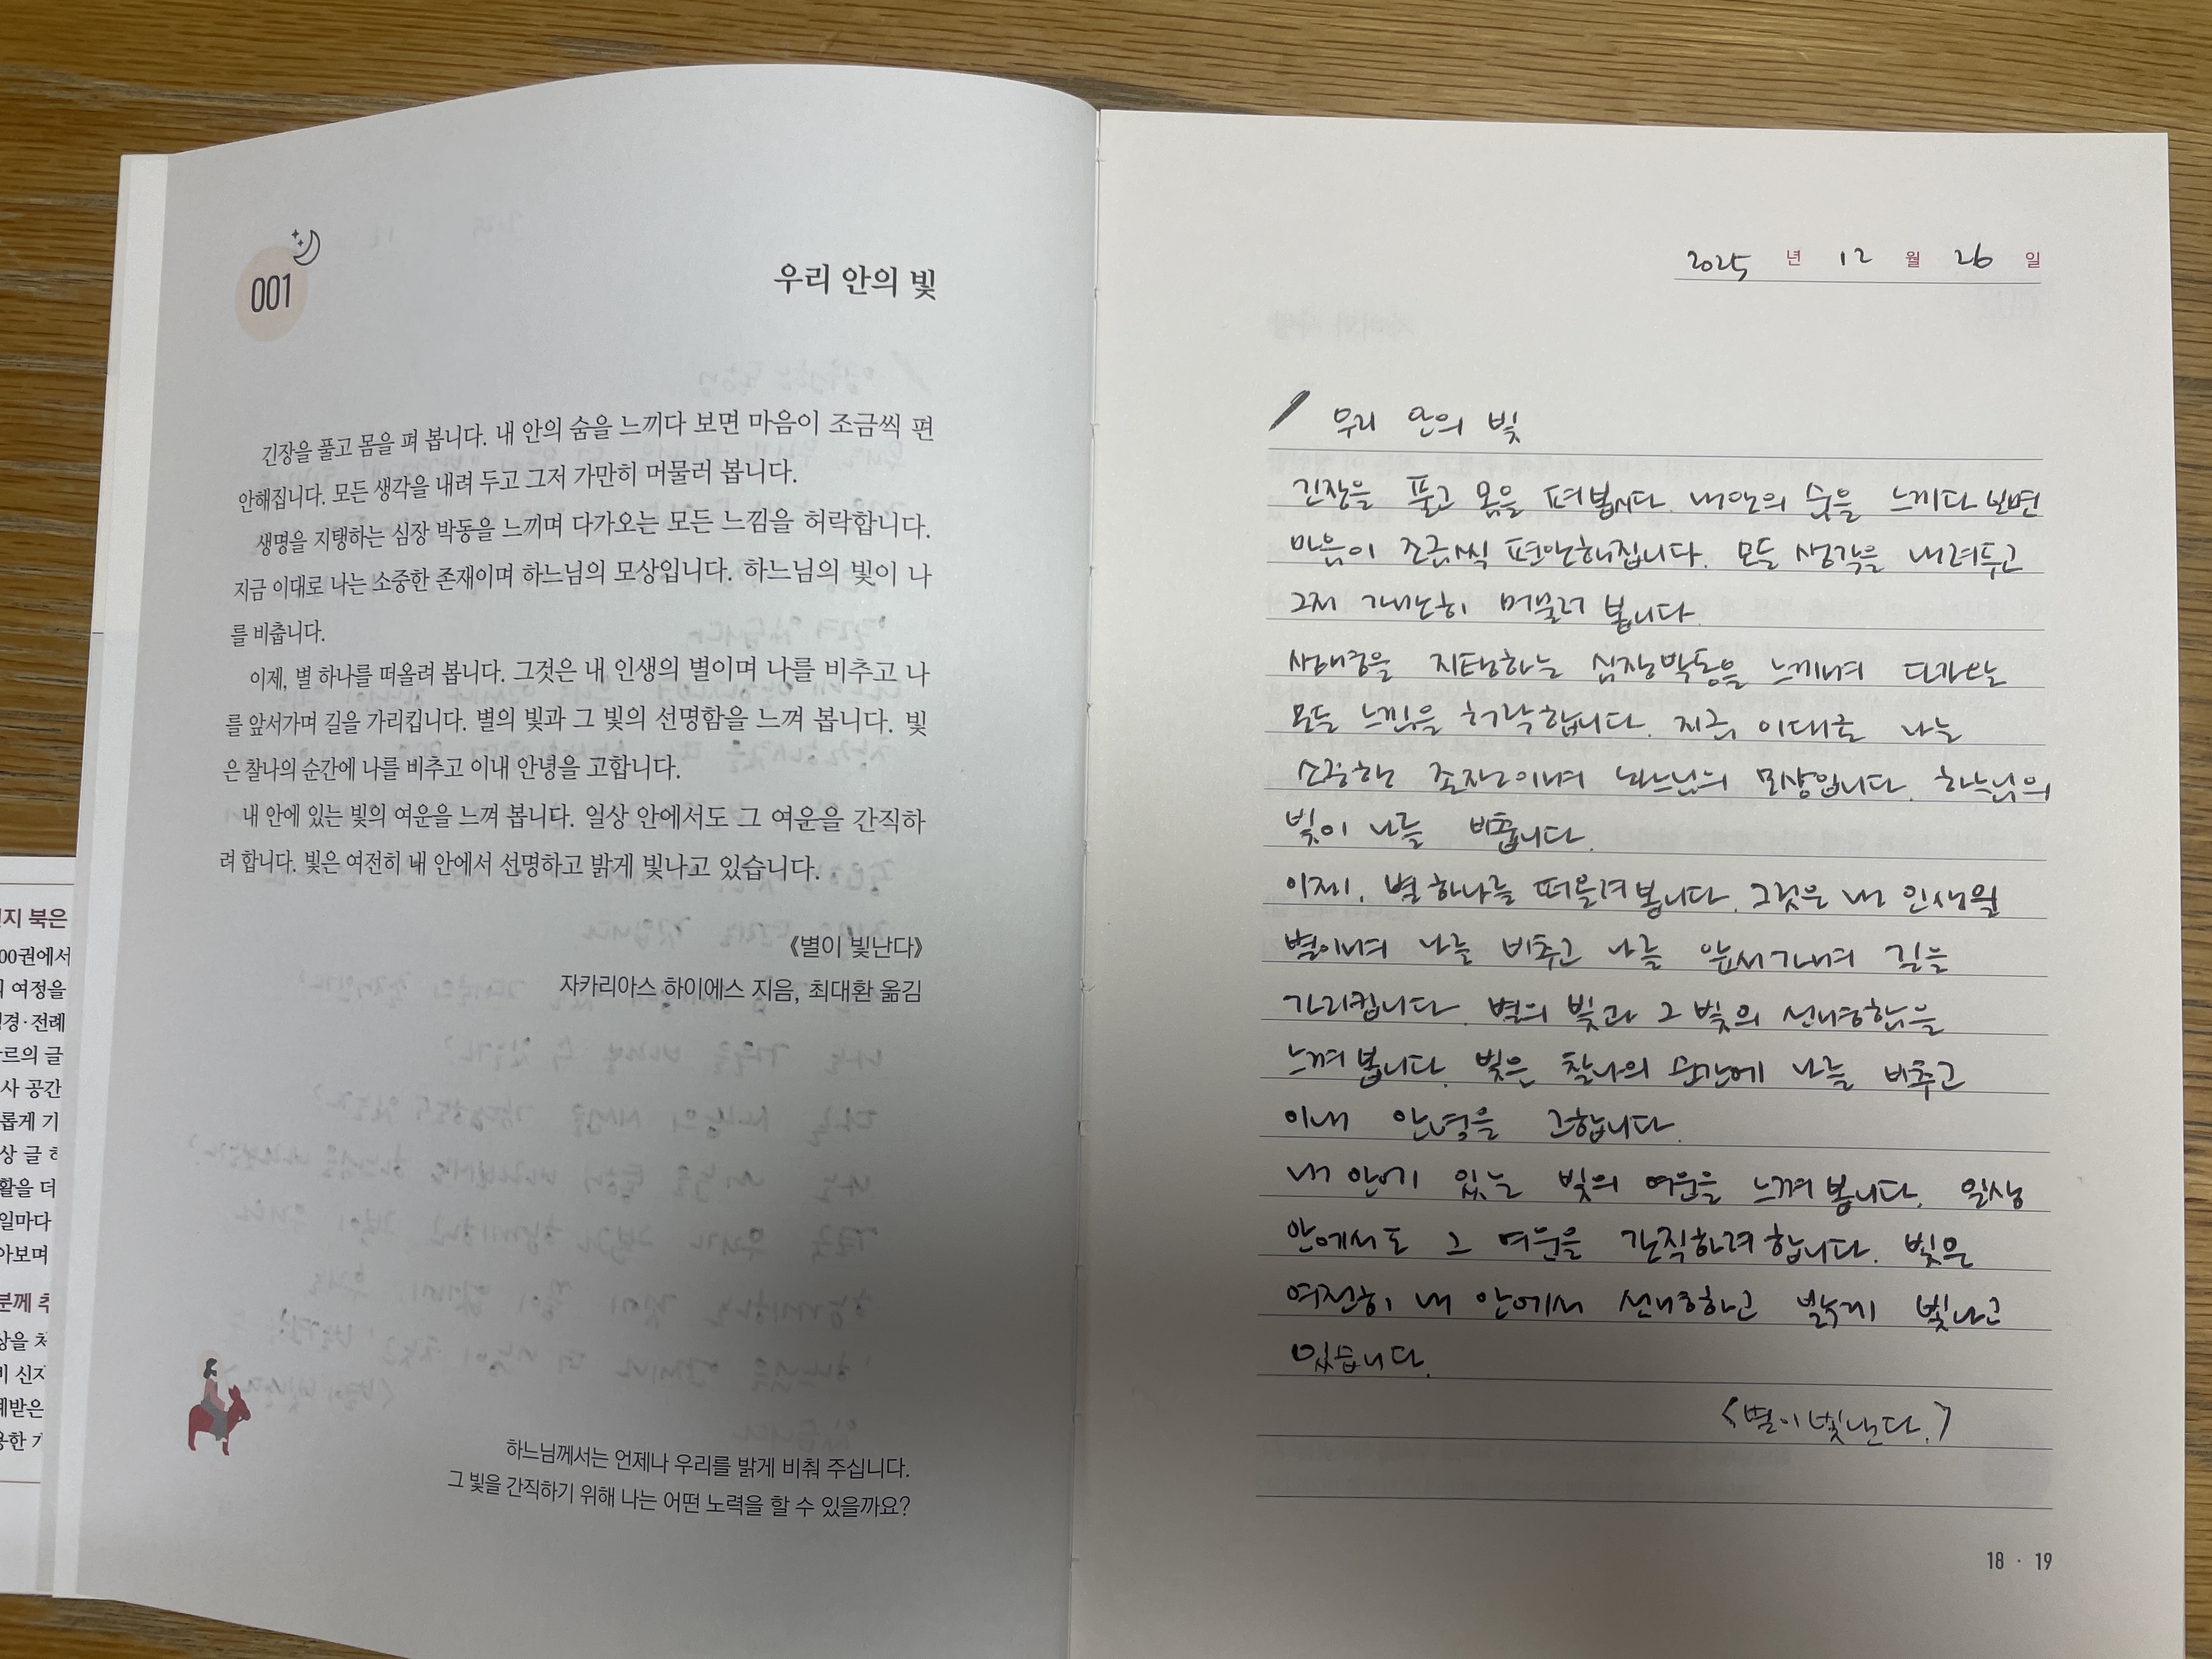 001
우리 안의 빛
긴장을 풀고 몸을 펴 봅니다. 내 안의 숨을 느끼다 보면 마음이 조금씩 편
안해집니다. 모든 생각을 내려 두고 그저 가만히 머물러 봅니다.
생명을 지탱하는 심장 박동을 느끼며 다가오는 모든 느낌을 허락합니다.
지금 이대로 나는 소중한 존재이며 하느님의 모상입니다. 하느님의 빛이 나
를 비춥니다.
이제, 별 하나를 떠올려 봅니다. 그것은 내 인생의 별이며 나를 비추고 나
를 앞서가며 길을 가리킵니다. 별의 빛과 그 빛의 선명함을 느껴 봅니다. 빛
은 찰나의 순간에 나를 비추고 이내 안녕을 고합니다.
내 안에 있는 빛의 여운을 느껴 봅니다. 일상 안에서도 그 여운을 간직하
려 합니다. 빛은 여전히 내 안에서 선명하고 밝게 빛나고 있습니다.
《별이 빛난다》
자카리아스 하이에스 지음, 최대환 옮김
하느님께서는 언제나 우리를 밝게 비춰 주십니다.
그 빛을 간직하기 위해 나는 어떤 노력을 할 수 있을까요?
지 북은
00권에서
여정을
경·전례
르의 글
사 공간
롭게 기
상 글
활을 더
일마다
아보며
분께
상을
신자
용한
2025 년 12 월 26 일
우리 안의 빛
긴장을 풀고 몸을 펴봅니다. 내안의 숨을 느끼다 보면
마음이 조금씩 편안해집니다. 모든 생각을 내려두고
그저 가만히 머물러 봅니다.
생명을 지탱하는 심장박동을 느끼며
모든 느낌을 허락합니다. 지금 이대로 나는
소중한 존재이며 하느님의 모상입니다. 하느님의
빛이 나를 비춥니다.
이제, 별 하나를 떠올려봅니다. 그것은 내 인생의
별이며 나를 비추고 나를 앞서가며 길을
가리킵니다. 별의 빛과 그 빛의 선명함을
느껴봅니다. 빛은 찰나의 순간에 나를 비추고
이내 안녕을 고합니다.
내 안에 있는 빛의 여운을 느껴봅니다. 일상
안에서도 그 여운을 간직하려합니다. 빛은
여전히 내 안에서 선명하고 밝게 빛나고
있습니다.
<별이 빛난다.>
18 · 19